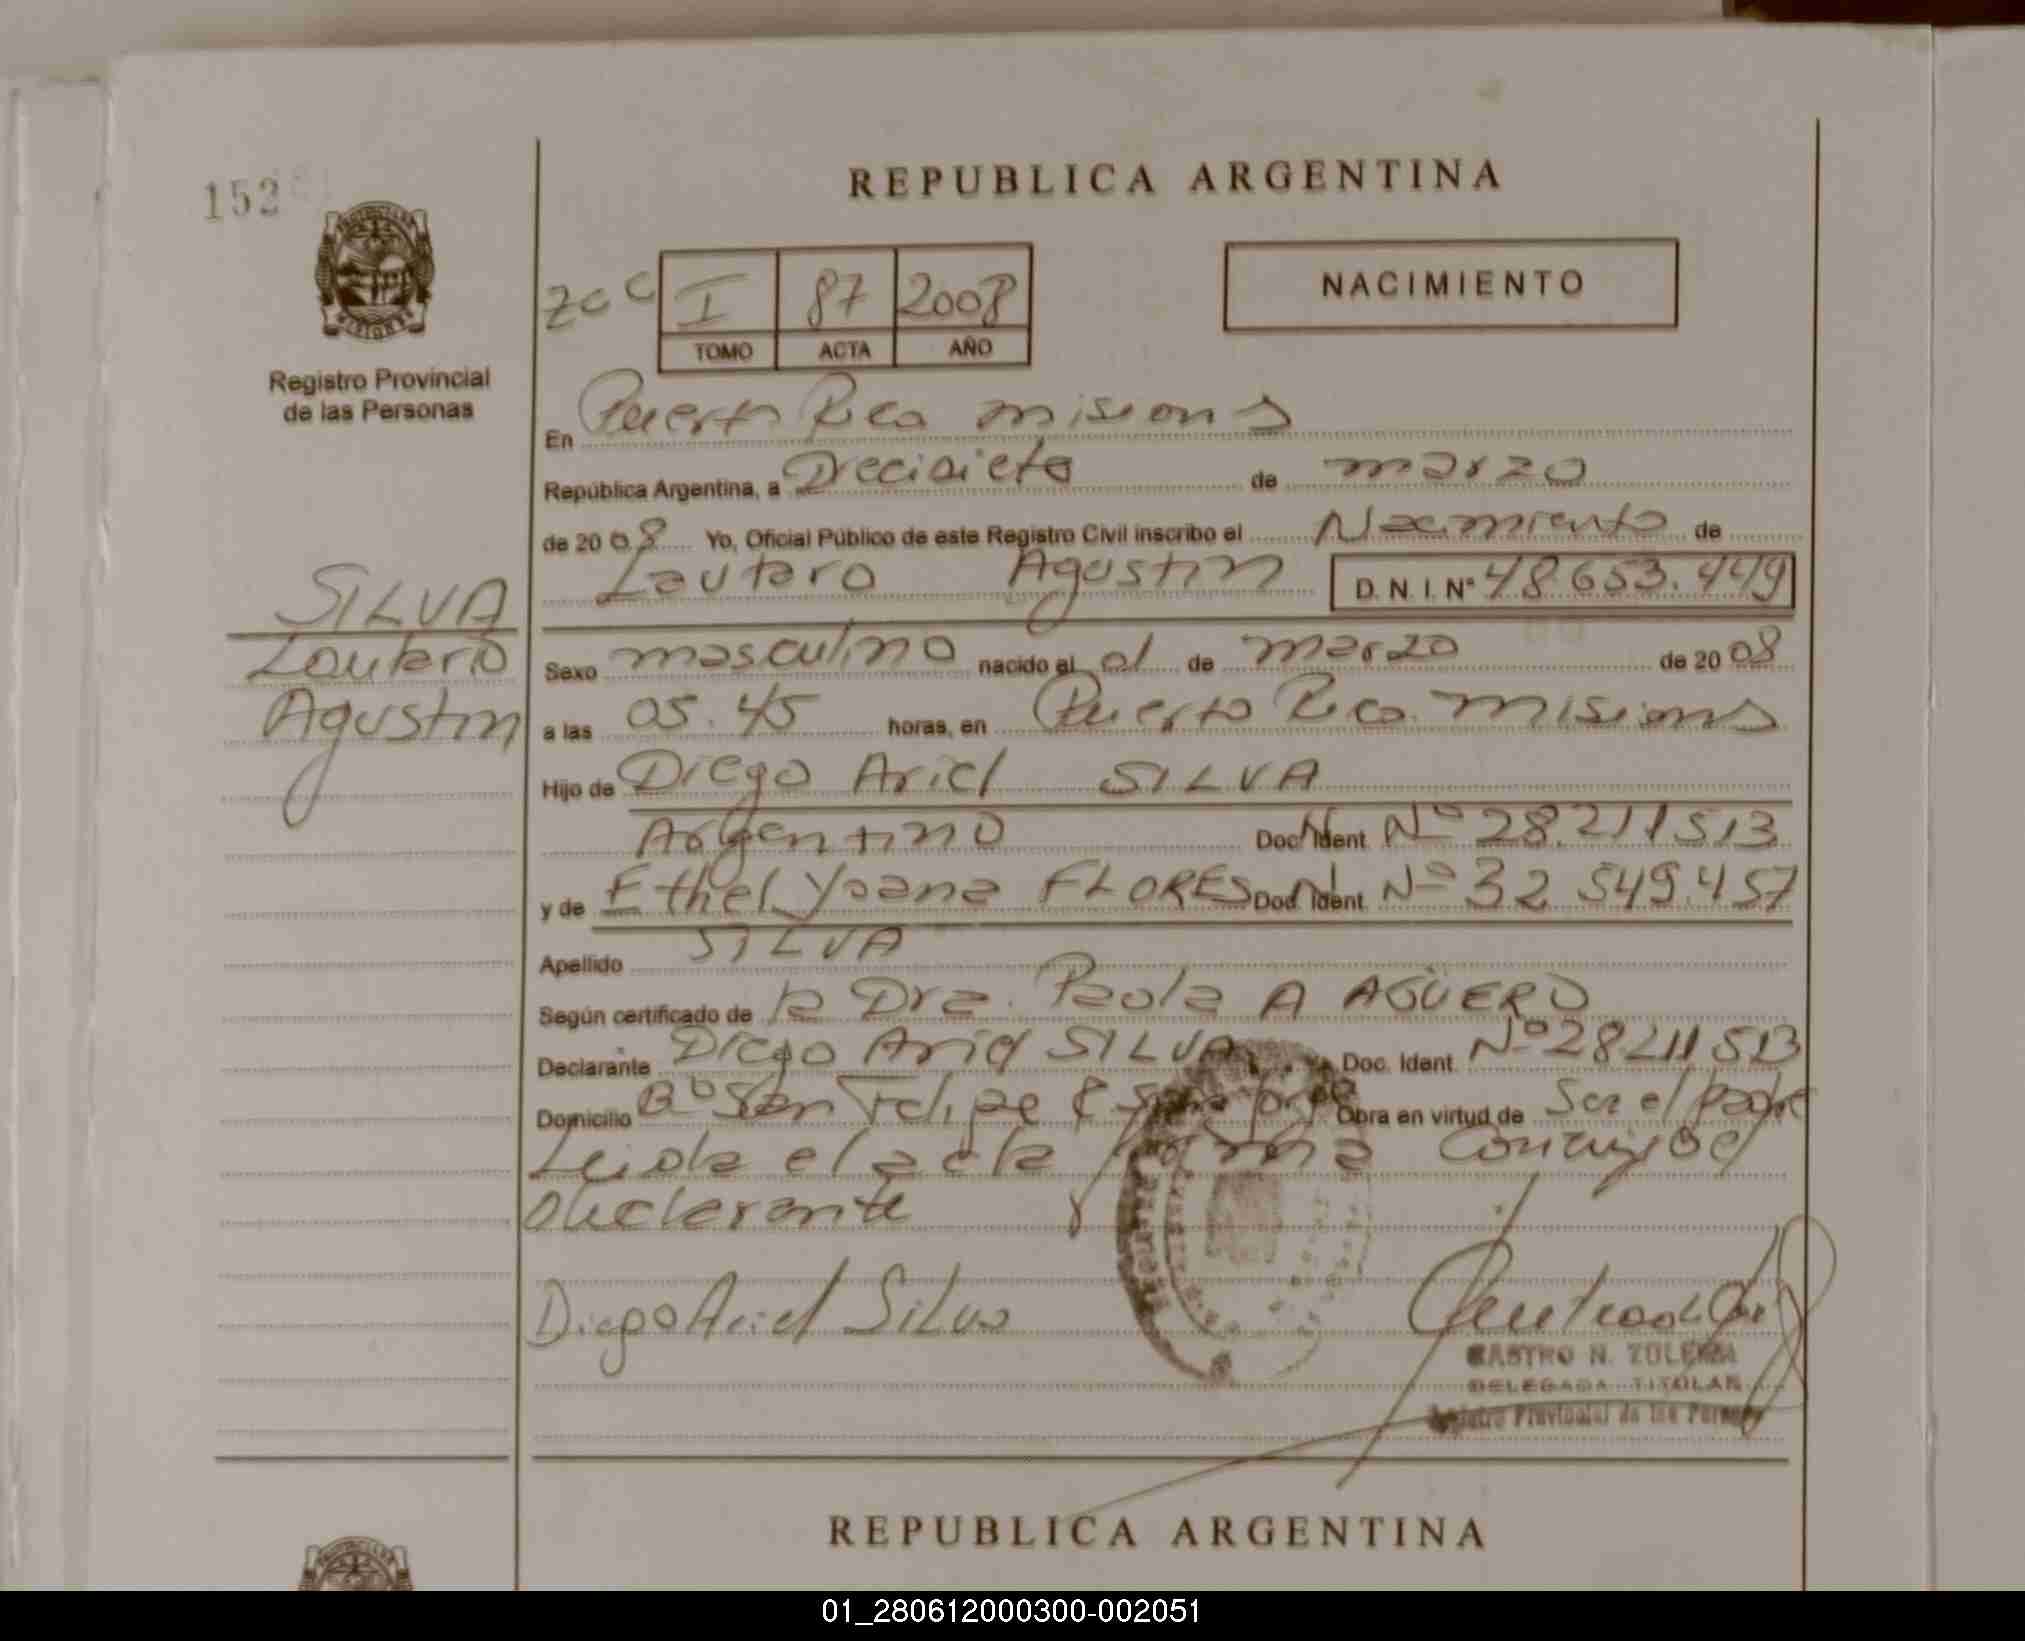 REPUBLICA ARGENTINA
152
I 87 2008
TOMO ACTA AÑO
NACIMIENTO
PROVINCIA DE
MISIONES
Registro Provincial
de las Personas
SILVA
Lautaro
Agustin
En Puerto Rico misiones
República Argentina, a Diecisiete de marzo
de 2008 Yo, Oficial Público de este Registro Civil inscribo el Nacimiento de
Lautaro Agustin D. N. I. Nº 48.653.449
Sexo masculino nacido el 01 de marzo de 2008
a las 05.45 horas, en Puerto Rico misiones
Hijo de Diego Ariel SILVA
Argentino Doc. Ident. Nº 28.211513
y de Ethel Yoana FLORES Doc. Ident. Nº 32 549.457
Apellido SILVA
Según certificado de la Dra. Paola A AGÜERO
Declarante Diego Ariel SILVA Doc. Ident. Nº 28211513
Domicilio Bº San Felipe Obra en virtud de Ser el padre
Leida el acta firma conmigo el
declarante
Diego Ariel Silva
CASTRO N. ZULEMA
DELEGADA TITULAR
Registro Provincial de las Personas
REPUBLICA ARGENTINA
01_280612000300-002051